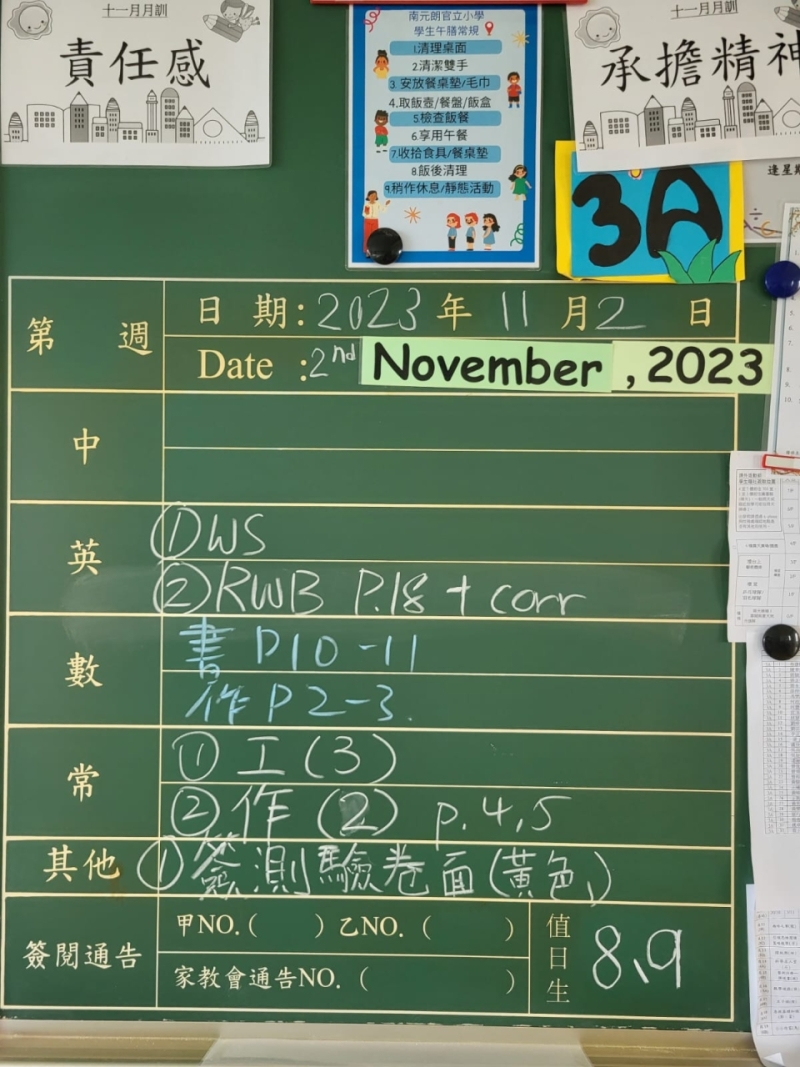 十一月月訓
責任感
南元朗官立小學
學生午膳常規
1.清理桌面
2.清潔雙手
3.安放餐桌墊/毛巾
4.取飯壺/餐盤/飯盒
5.檢查飯餐
6.享用午餐
7.收拾食具/餐桌墊
8.飯後清理
9.稍作休息/靜態活動
十一月月訓
承擔精神
3A
逢星期
第 週
日 期: 2023 年 11 月 2 日
Date : 2nd November , 2023
中
英
① WS
② RWB P.18 + corr
數
書 P10-11
作 P2-3.
常
① 工 (3)
② 作 (2) p.4,5
其他 ① 簽測驗卷面(黃色)
簽閱通告
甲NO. ( ) 乙NO. ( )
家教會通告NO. ( )
值日生 8、9